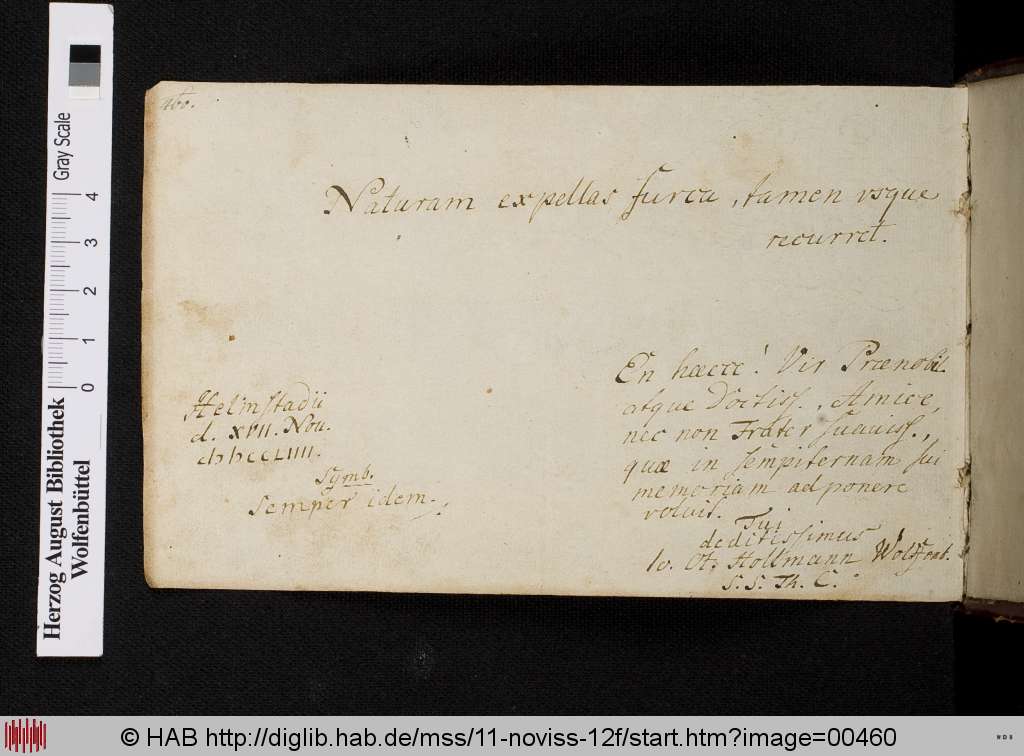 460.
Naturam expellas furca, tamen vsque
recurret.
Helmstadii
d. XVII. Nov.
cIɔIɔCCLIIII.
Symb.
Semper idem.
En haecce! Vir Praenobil.
atque Doctiss., Amice,
nec non Frater suauiss.,
quae in sempiternam sui
memoriam adponere
voluit.
Tui
deditissimus
Io. Ot. Hollmann Wolffenb.
S. S. Th. C.
Herzog August Bibliothek
Wolfenbüttel
Gray Scale
0 1 2 3 4
© HAB http://diglib.hab.de/mss/11-noviss-12f/start.htm?image=00460